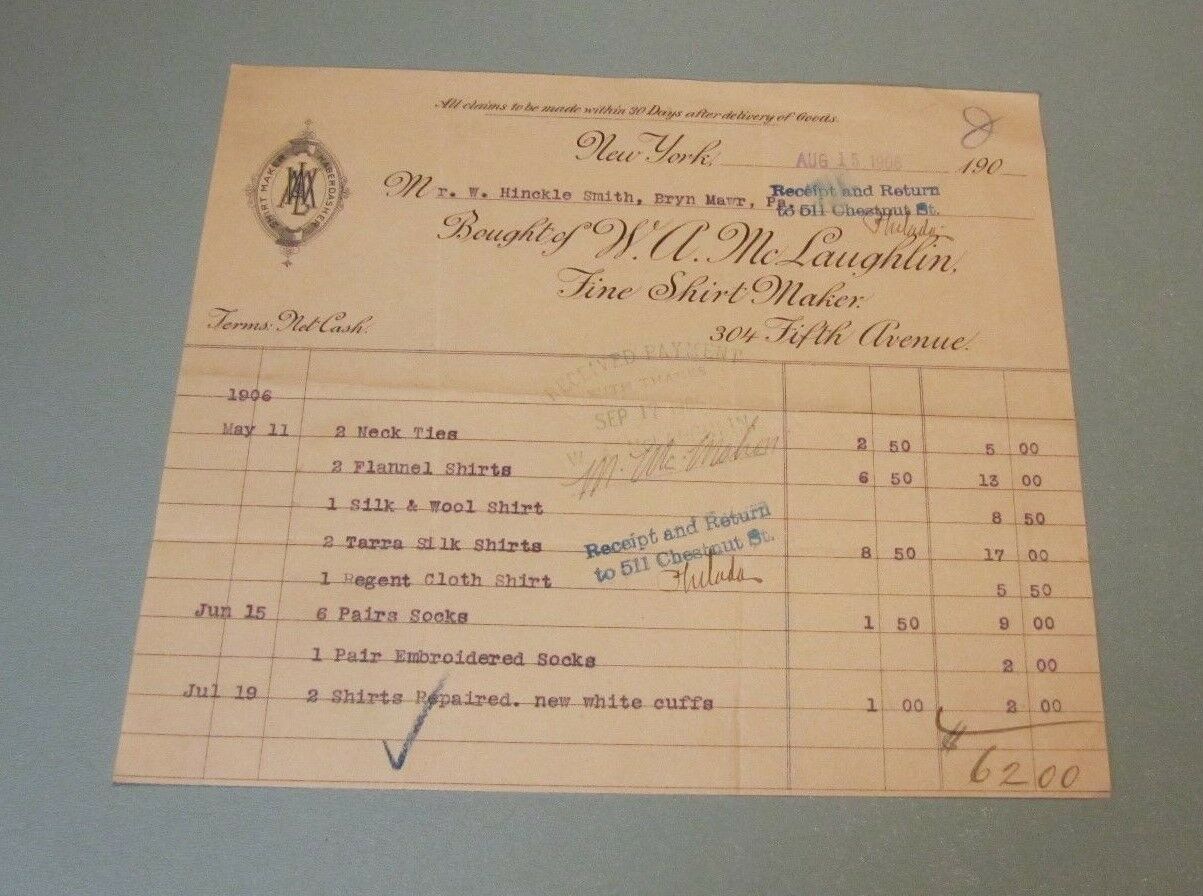 All claims to be made within 30 Days after delivery of Goods.
8
New York, AUG 15 1906 190
SHIRT MAKER HABERDASHER
Mr. W. Hinckle Smith, Bryn Mawr, Pa.
Receipt and Return
to 511 Chestnut St.
Philada
Bought of W. A. McLaughlin,
Fine Shirt Maker.
Terms: Net Cash. 304 Fifth Avenue.
RECEIVED PAYMENT
WITH THANKS
SEP 17
1906
May 11 2 Neck Ties 2 50 5 00
2 Flannel Shirts 6 50 13 00
1 Silk & Wool Shirt 8 50
2 Tarra Silk Shirts 8 50 17 00
1 Regent Cloth Shirt 5 50
Receipt and Return
to 511 Chestnut St.
Philada
Jun 15 6 Pairs Socks 1 50 9 00
1 Pair Embroidered Socks 2 00
Jul 19 2 Shirts Repaired. new white cuffs 1 00 2 00
$ 62 00